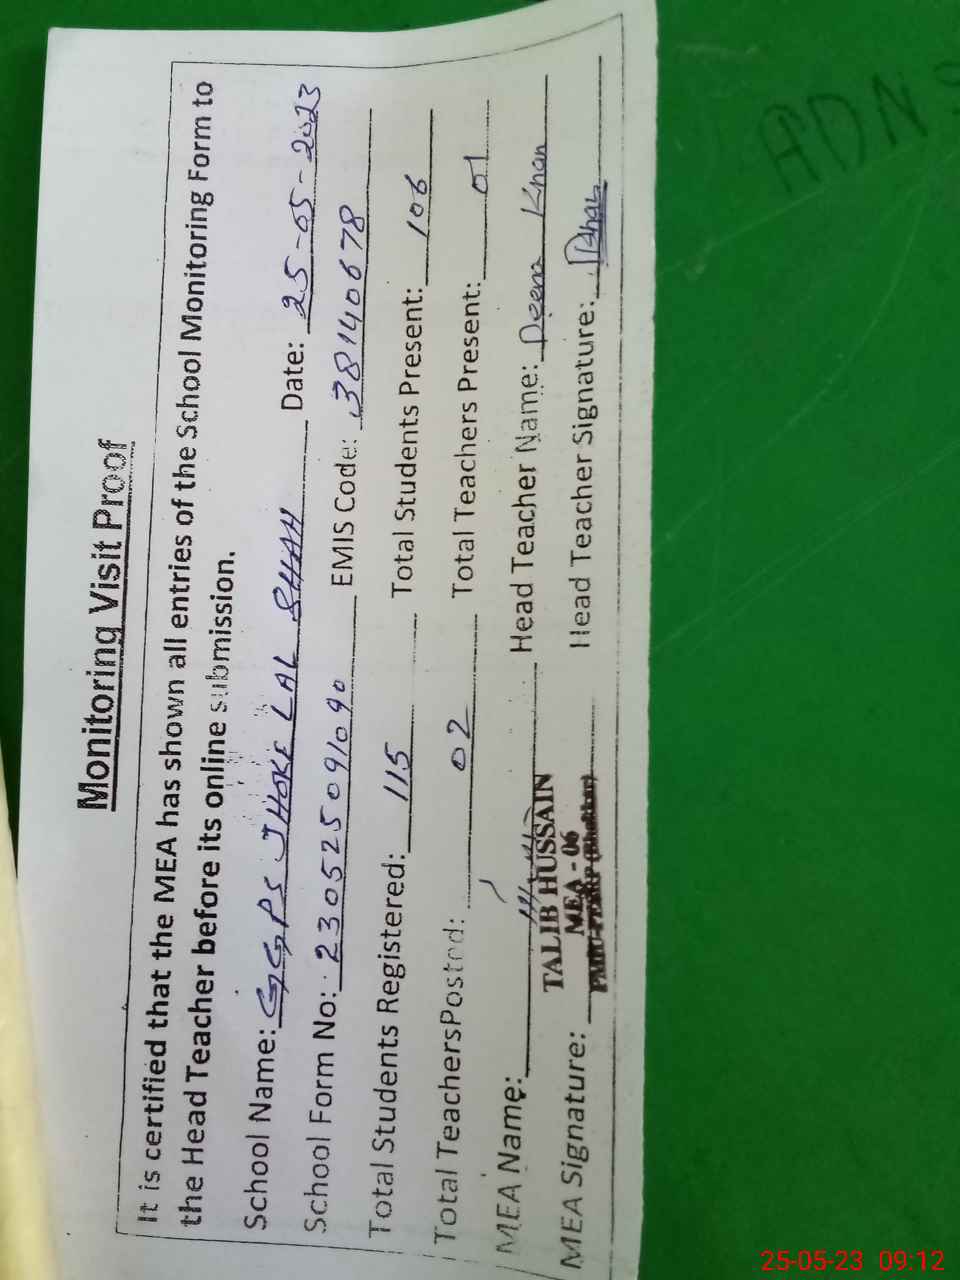 Monitoring Visit Proof
It is certified that the MEA has shown all entries of the School Monitoring Form to
the Head Teacher before its online submission.
School Name: GGPS JHOKE LAL SHAH Date: 25-05-2023
School Form No: 230525091090 EMIS Code: 38140678
Total Students Registered: 115 Total Students Present: 106
Total TeachersPosted: 02 Total Teachers Present: 01
MEA Name: Head Teacher Name: Deena Khan
TALIB HUSSAIN
MEA - 06
(Bhakkar)
MEA Signature: Head Teacher Signature:
ADN
25-05-23 09:12